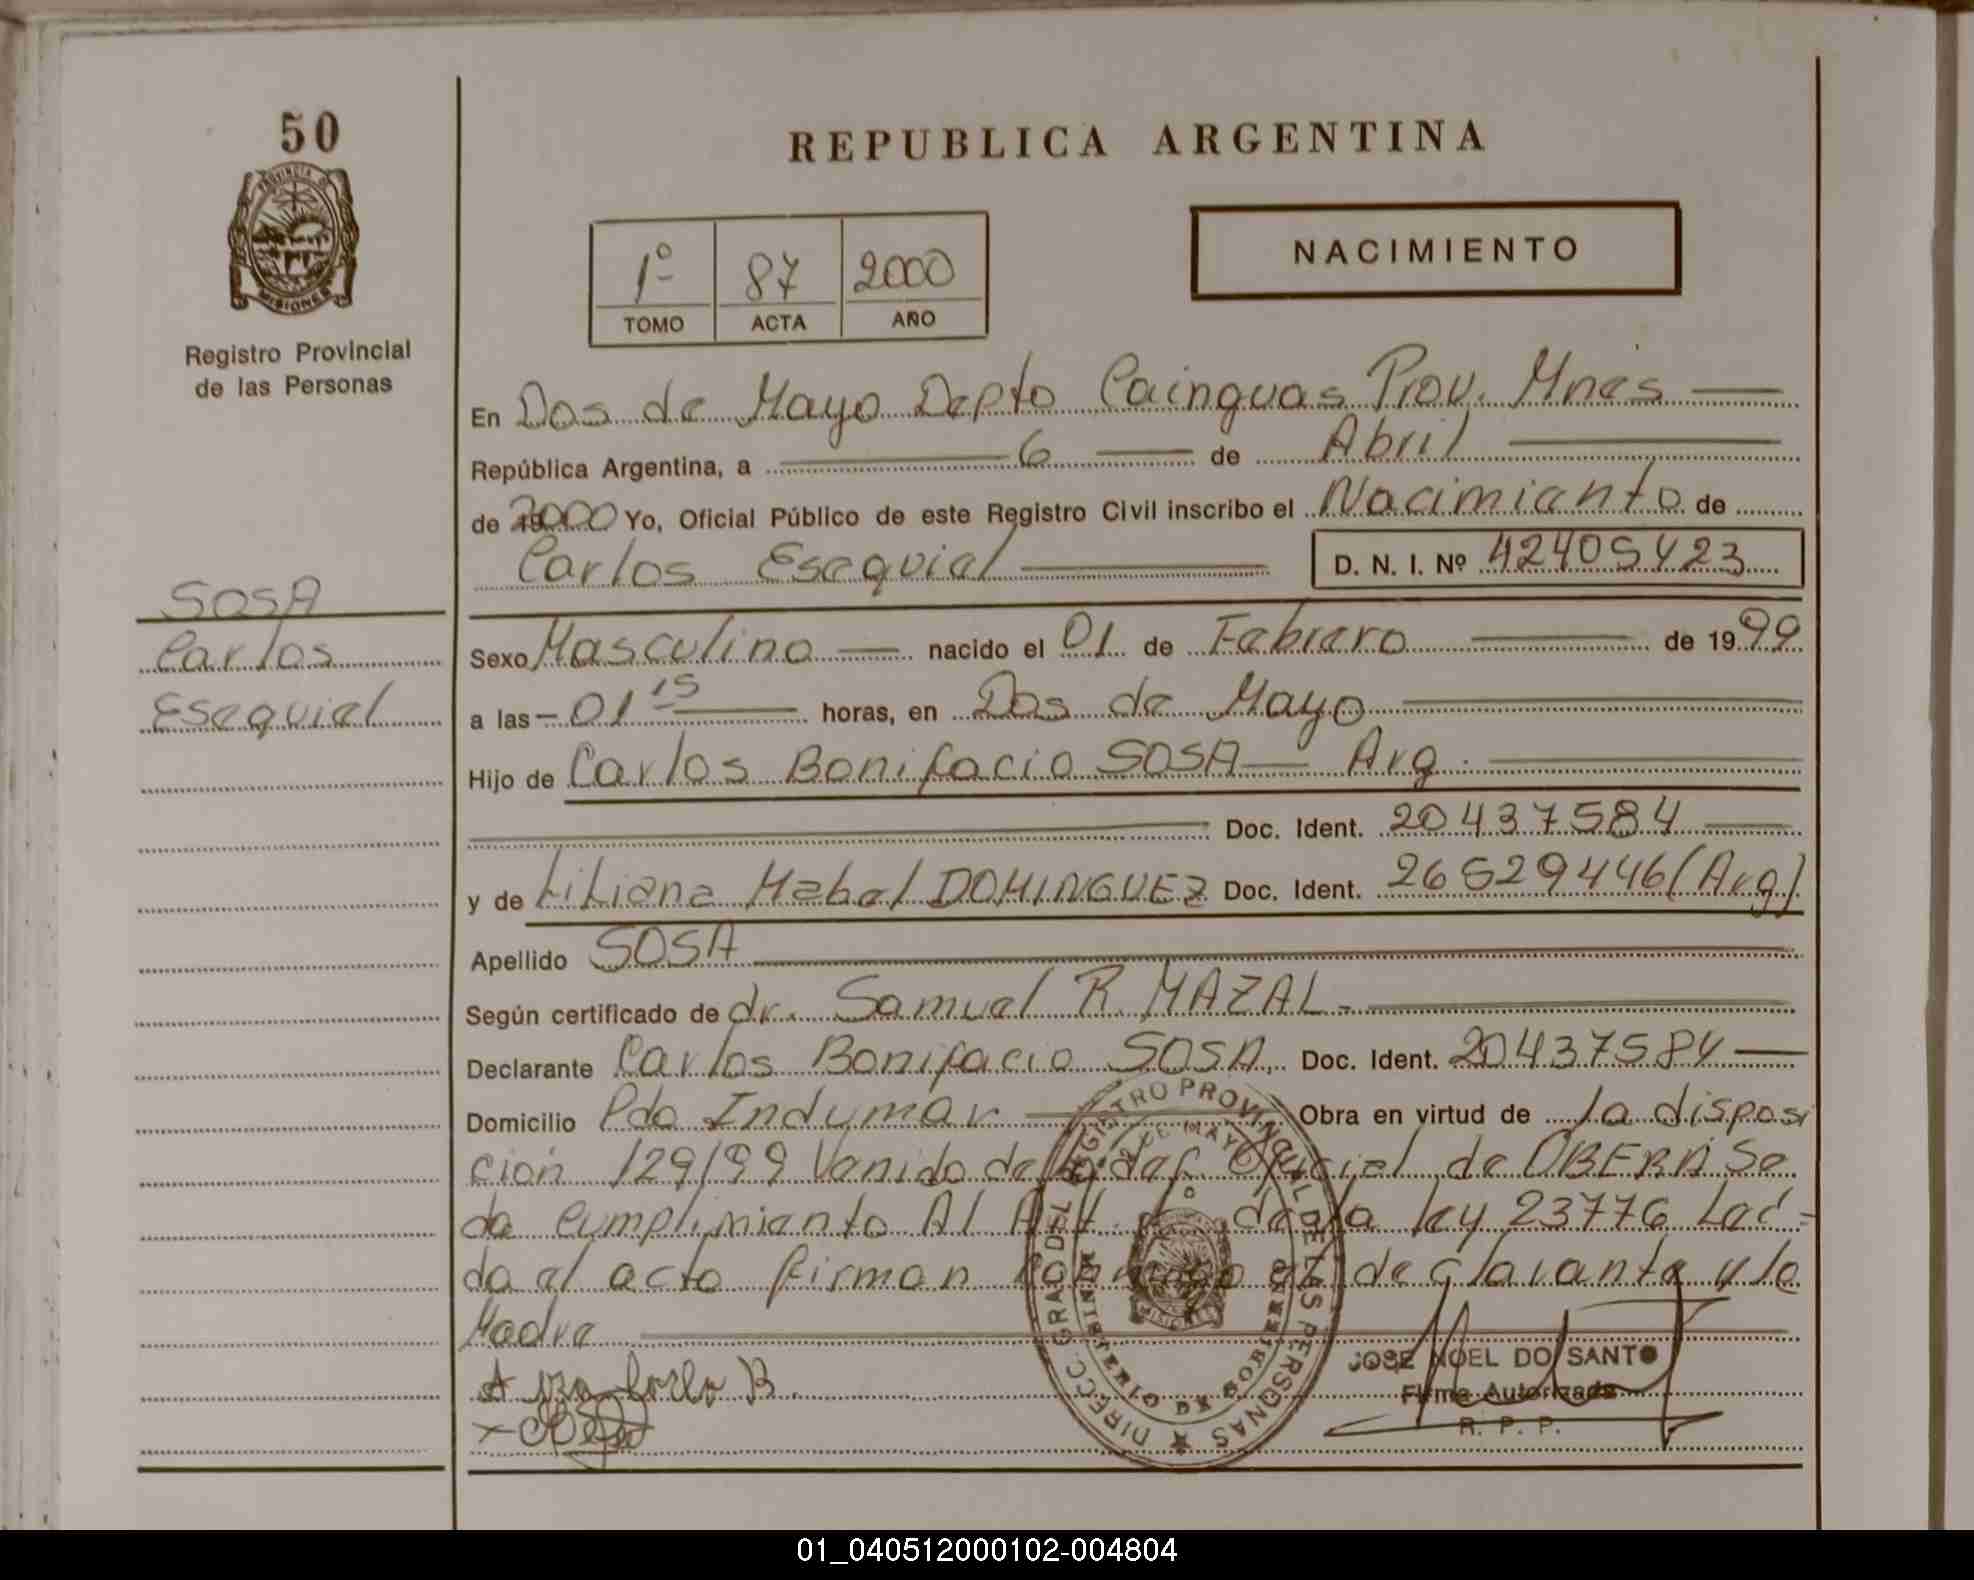 50
REPUBLICA ARGENTINA
PROVINCIA DE
MISIONES
Registro Provincial
de las Personas
1º 87 2000
TOMO ACTA AÑO
NACIMIENTO
En Dos de Mayo Depto Cainguas Prov. Mnes
República Argentina, a 6 de Abril
de 2000 Yo, Oficial Público de este Registro Civil inscribo el Nacimiento de
Carlos Esequiel D. N. I. Nº 42405423
SOSA
Carlos
Esequiel
Sexo Masculino nacido el 01 de Febrero de 1999
a las 01 15 horas, en Dos de Mayo
Hijo de Carlos Bonifacio SOSA Arg.
Doc. Ident. 20437584
y de Liliana Mabel DOMINGUEZ Doc. Ident. 26529446 (Arg)
Apellido SOSA
Según certificado de dr. Samuel R. MAZAL.
Declarante Carlos Bonifacio SOSA, Doc. Ident. 20437584
Domicilio Pdo Indumar Obra en virtud de la disposi
ción 129/99 Venido de la de Oficial de OBERA Se
da cumplimiento Al Art. de la ley 23776 Leí-
da el acto firman conmigo el declarante y la
Madre
JOSE NOEL DO SANTO
Firma Autorizada
R. P. P.
DIRECC. GRAL DEL REGISTRO PROVINCIAL DE LAS PERSONAS
DE MAYO
MINISTERIO DE GOBIERNO
MISIONES
01_040512000102-004804